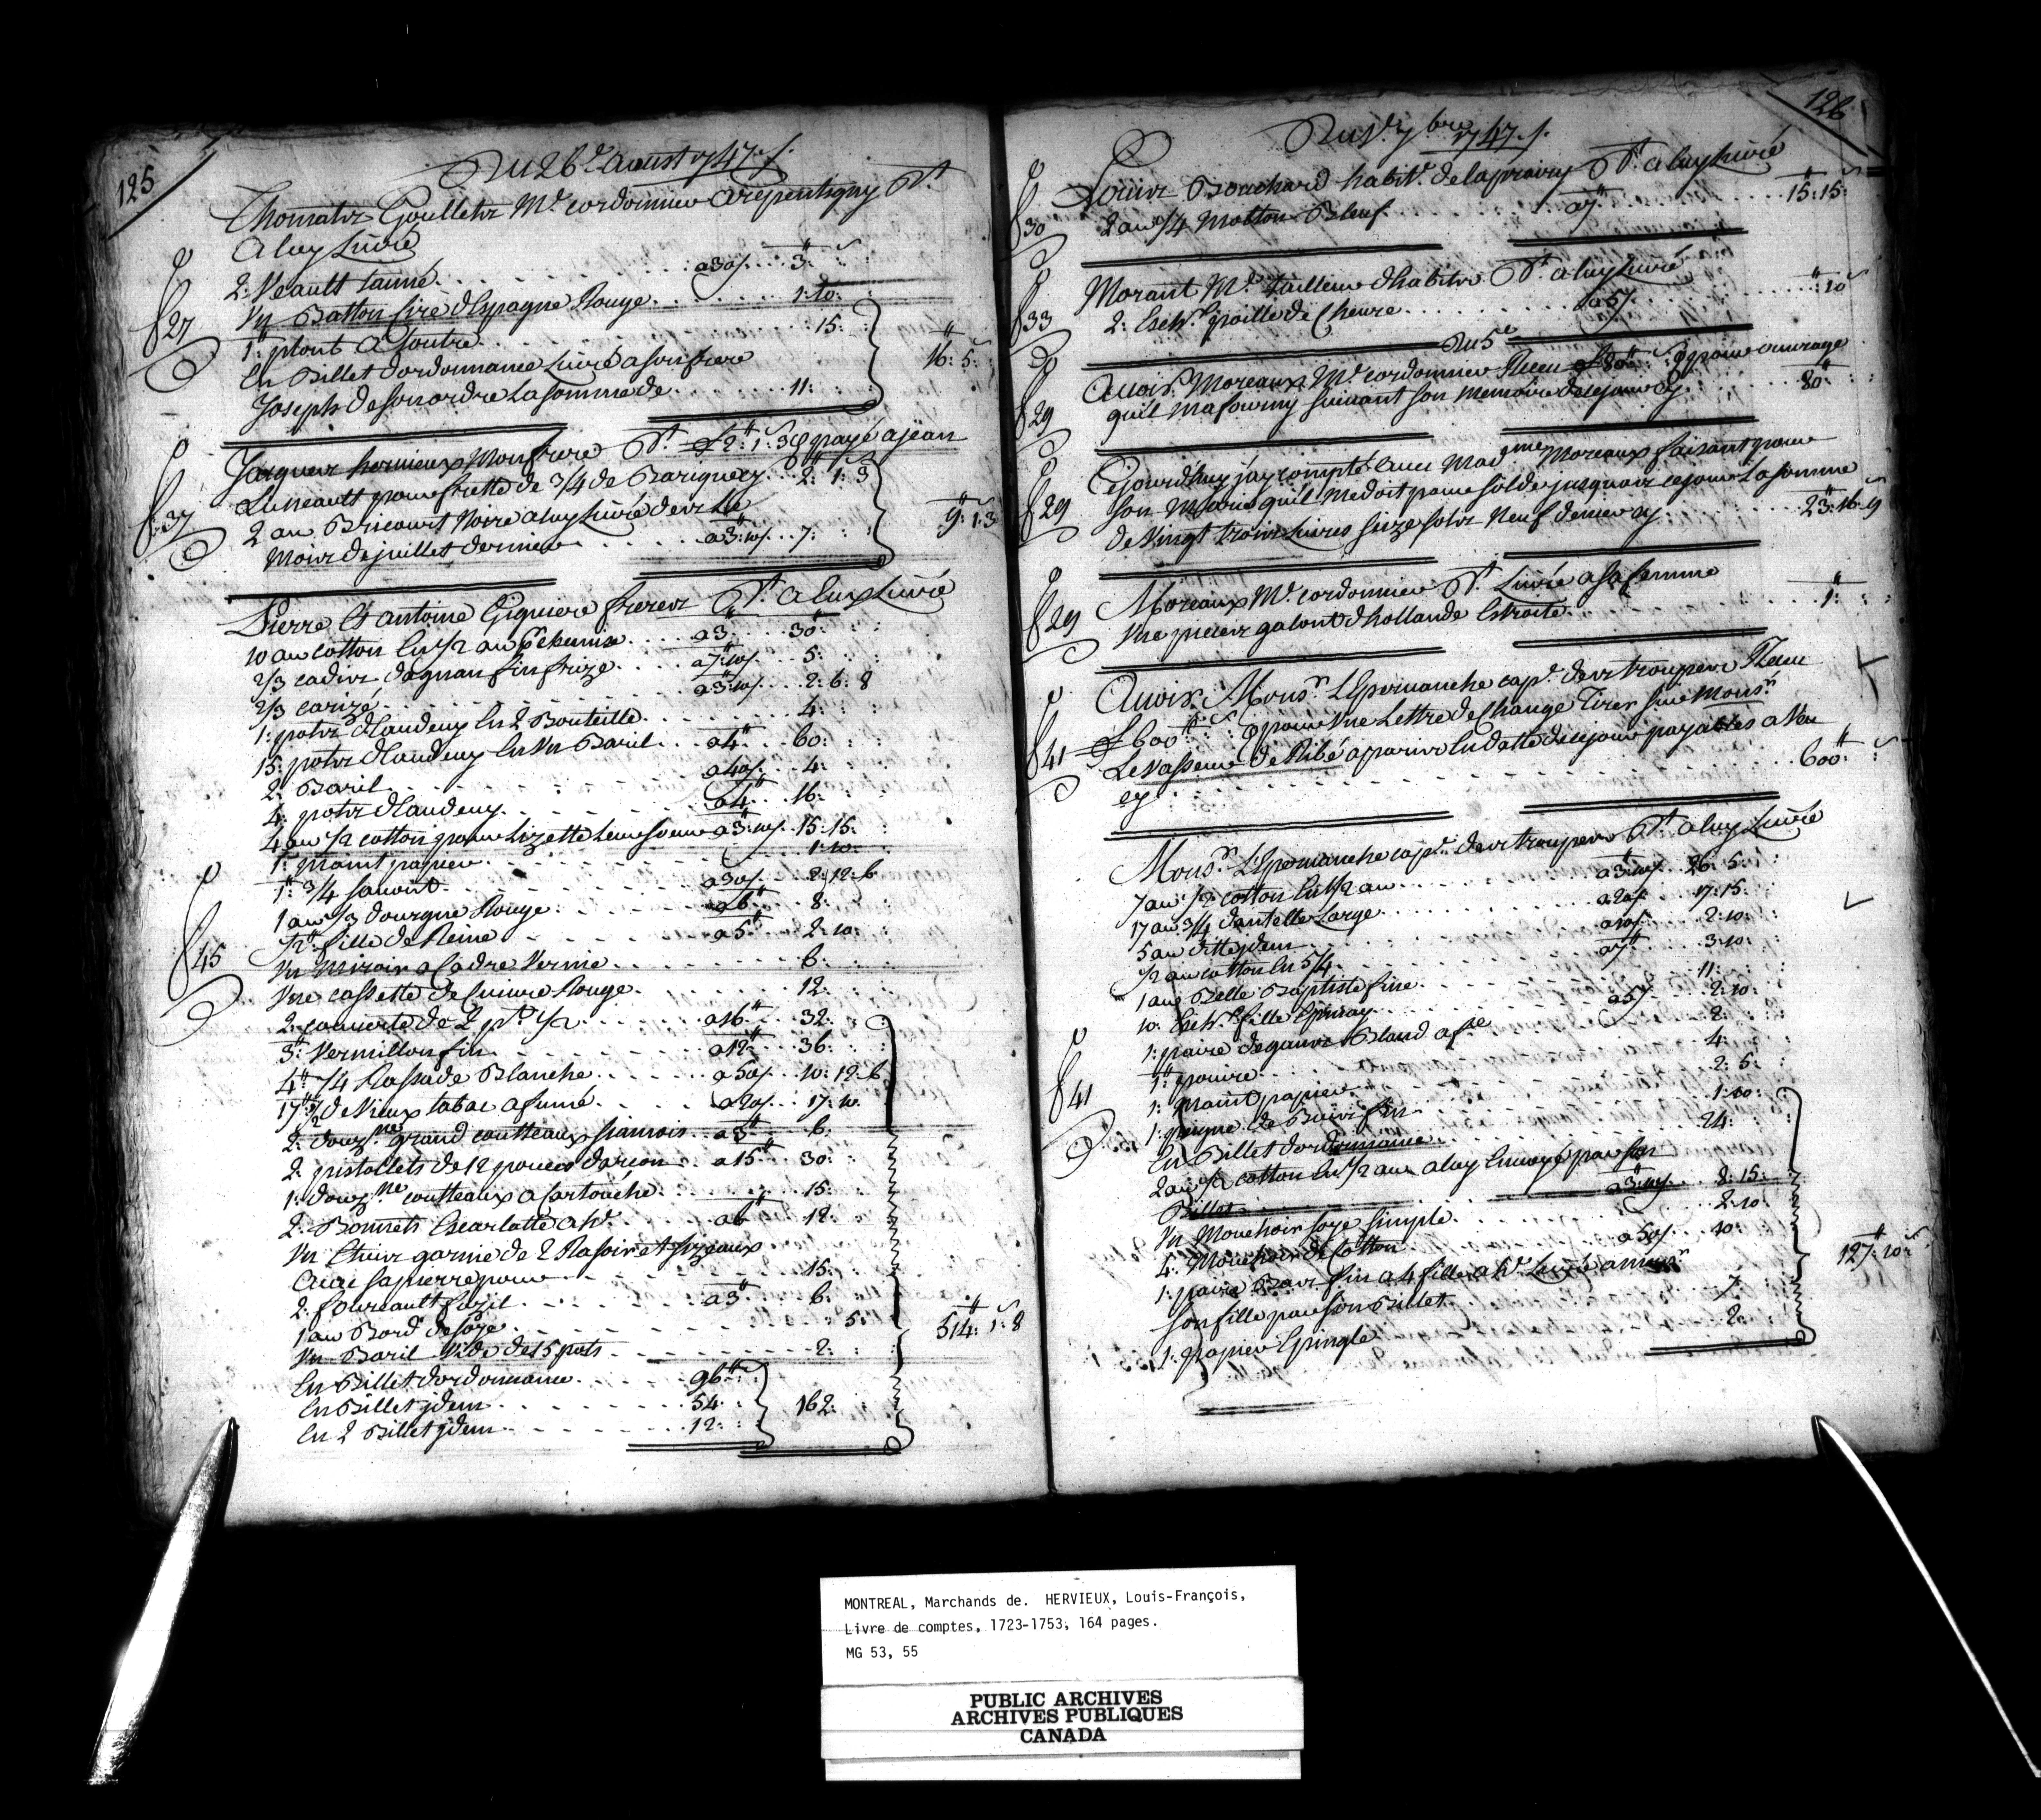 125
Du 26e aoust 1747 /.
Thomas Goulletz Md cordonnier a repentigny Dt
a luy Livré
2: Veault tanné . . . a 30s . . 3:
27
Un Batton Cire d'Espagne Rouge . . . 1: 10:
1: plont a foutre . . . 15:
En Billet d'ordonnance Livré a son frere
16: 5:
Joseph de son ordre La somme de . . . 11:
Jacques hervieux Mon frere Dt £2: 1: 3 payé a jean
Luneault pour frette de 3/4 de Barique cy . . 2: 1: 3
37
2 au Bricourt Noire a luy Livré des Le
9: 1: 3
Mois de juillet dernier . . . a 3: 10s . . 7:
Pierre Et antoine Giguiere freres Dt a Eux Livré
10 au cotton En 1/2 au . . . a 3 . . 30:
2/3 cadis d'agnan fin frize . . . a 7: 10s . . 5:
2/3 carizé . . . a 3: 10s . . 2: 6: 8
1: pots d'Eaudevy En 2 Bouteille . . . 4:
15: pots d'Eaudevy En Un Baril . . a 4 . . 60:
2: Baril . . . a 40s . . 4:
4: pots d'Eaudevy . . . a 4 . . 16:
4 au 1/2 cotton pour Lizette Leur soeur a 3: 10s . . 15: 15:
1: Maint papier . . . 1: 10:
1: 3/4 savont . . . a 30s . . 2: 12: 6
1 au 1/3 dourgne Rouge . . . a 6 . . 8:
1/2 fille de Reine . . . a 5 . . 2: 10:
45
Un Miroir a Cadre Vernie . . . 6:
Une cassette de Cuivre Rouge . . . 12:
2: couverte de 2 pts 1/2 . . . a 16 . . 32:
3: Vermillon fin . . . a 12 . . 36:
4: 1/4 Rassade Blanche . . . a 50s . . 10: 12: 6
17: 1/2 de Vieux tabac a fumé . . . a 20s . . 17: 10:
2: douzne grand coutteaux siamois . . a 3 . . 6:
2: pistollets de 12 pouces d'arçon . . a 15 . . 30:
1: douzne coutteaux a Cartouche . . . 15:
2: Bonnets Escarlatte . . . a 6 . . 12:
Un Etuis garnie de 2 Rasoir et sizeaux
avec sa pierre pour . . . 15:
2: fourault fuzil . . . a 3 . . 6:
1 au Bord de soye . . . 5:
514: 1: 8
Un Baril Vide de 15 pots . . . 2:
En Billet d'ordonnance . . . 96
En Billet jdem . . . 54 . . 162:
En 2 Billet jdem . . . 12:
126
Du 1er 7bre 1747 /.
Louis Bouchard habitt de laprairy Dt a luy Livré
30
2 au 1/4 Molton Bleuf . . . a 7 . . 15: 15:
Morant Md tailleur d'habits Dt a luy Livré
33
2: Echv poille de Chevre . . . a 5s . . 10
Du 5e
Avoir Moreaux Md cordonnier Recu £80 pour ouvrage
29
quil ma fourny suivant son Memoire de ce jour cy . . . 80:
Cejourdhuy j'ay compté avec Madme Moreaux faisant pour
29
son Marie quil me doit pour solde jusquois ce jour La somme
de Vingt trois Livres seize sols Neuf denier cy . . . 23: 16: 9
Moreaux Md cordonnier Dt Livré a sa femme
29
Une pieces galont d'hollande Estroite . . . 1:
Avoir Monsr L'Epervanche capt des troupes Recu
41
£600 pour Une Lettre de Change Tirer sur Monsr
Le Vasseur de Ribé a pariss En datte de ce jour payables a Vue
cy . . . 600:
Monsr L'Epervanche capt des troupes Dt a luy Livré
7 au 1/2 cotton En 1/2 au . . . a 3: 10s . . 26: 5:
17 au 3/4 dantelle Large . . . a 20s . . 17: 15:
5 au ditte jdem . . . a 10s . . 2: 10:
1/2 au cotton En 5/4 . . . a 7 . . 3: 10:
1 aune Belle Baptiste fine . . . 11:
10: Echv fille Epinay . . . a 5s . . 2: 10:
1: paire de gans Bland a fe . . . 2:
41
1: poivre . . . 4:
1: Maint papier . . . 2: 5:
1: peigne de Buis fin . . . 1: 10:
En Billet d'ordonnance . . . 24:
2 au 1/2 cotton En 1/2 aux a luy Envoyé par son
Billet . . . a 3: 10s . . 8: 15:
Un Mouchoir soye simple . . . 2: 10:
4: Mouchoir de Cotton . . . a 50s . . 10:
127: 10:
1: paire Bas fin a 4 fille Livré a
son fille par son Billet . . . 7
1: papier Epingle . . . 2:
MONTREAL, Marchands de. HERVIEUX, Louis-François,
Livre de comptes, 1723-1753, 164 pages.
MG 53, 55
PUBLIC ARCHIVES
ARCHIVES PUBLIQUES
CANADA